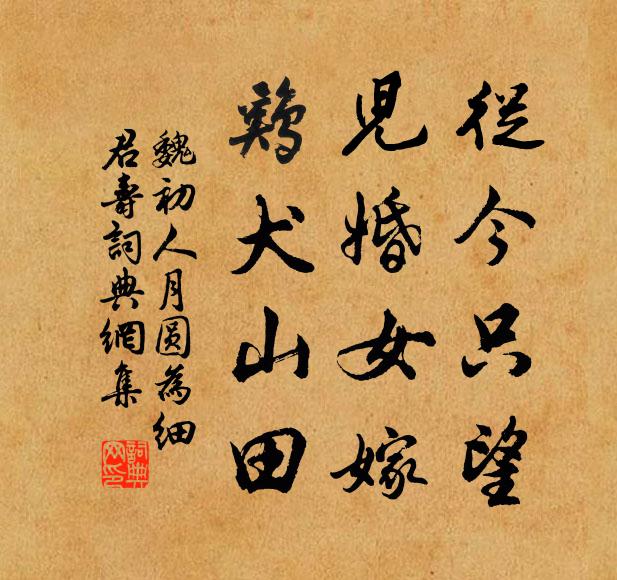 從今只望
兒婚女嫁
鷄犬山田
魏初人月圓為細
君壽詞典網集
詞典网印